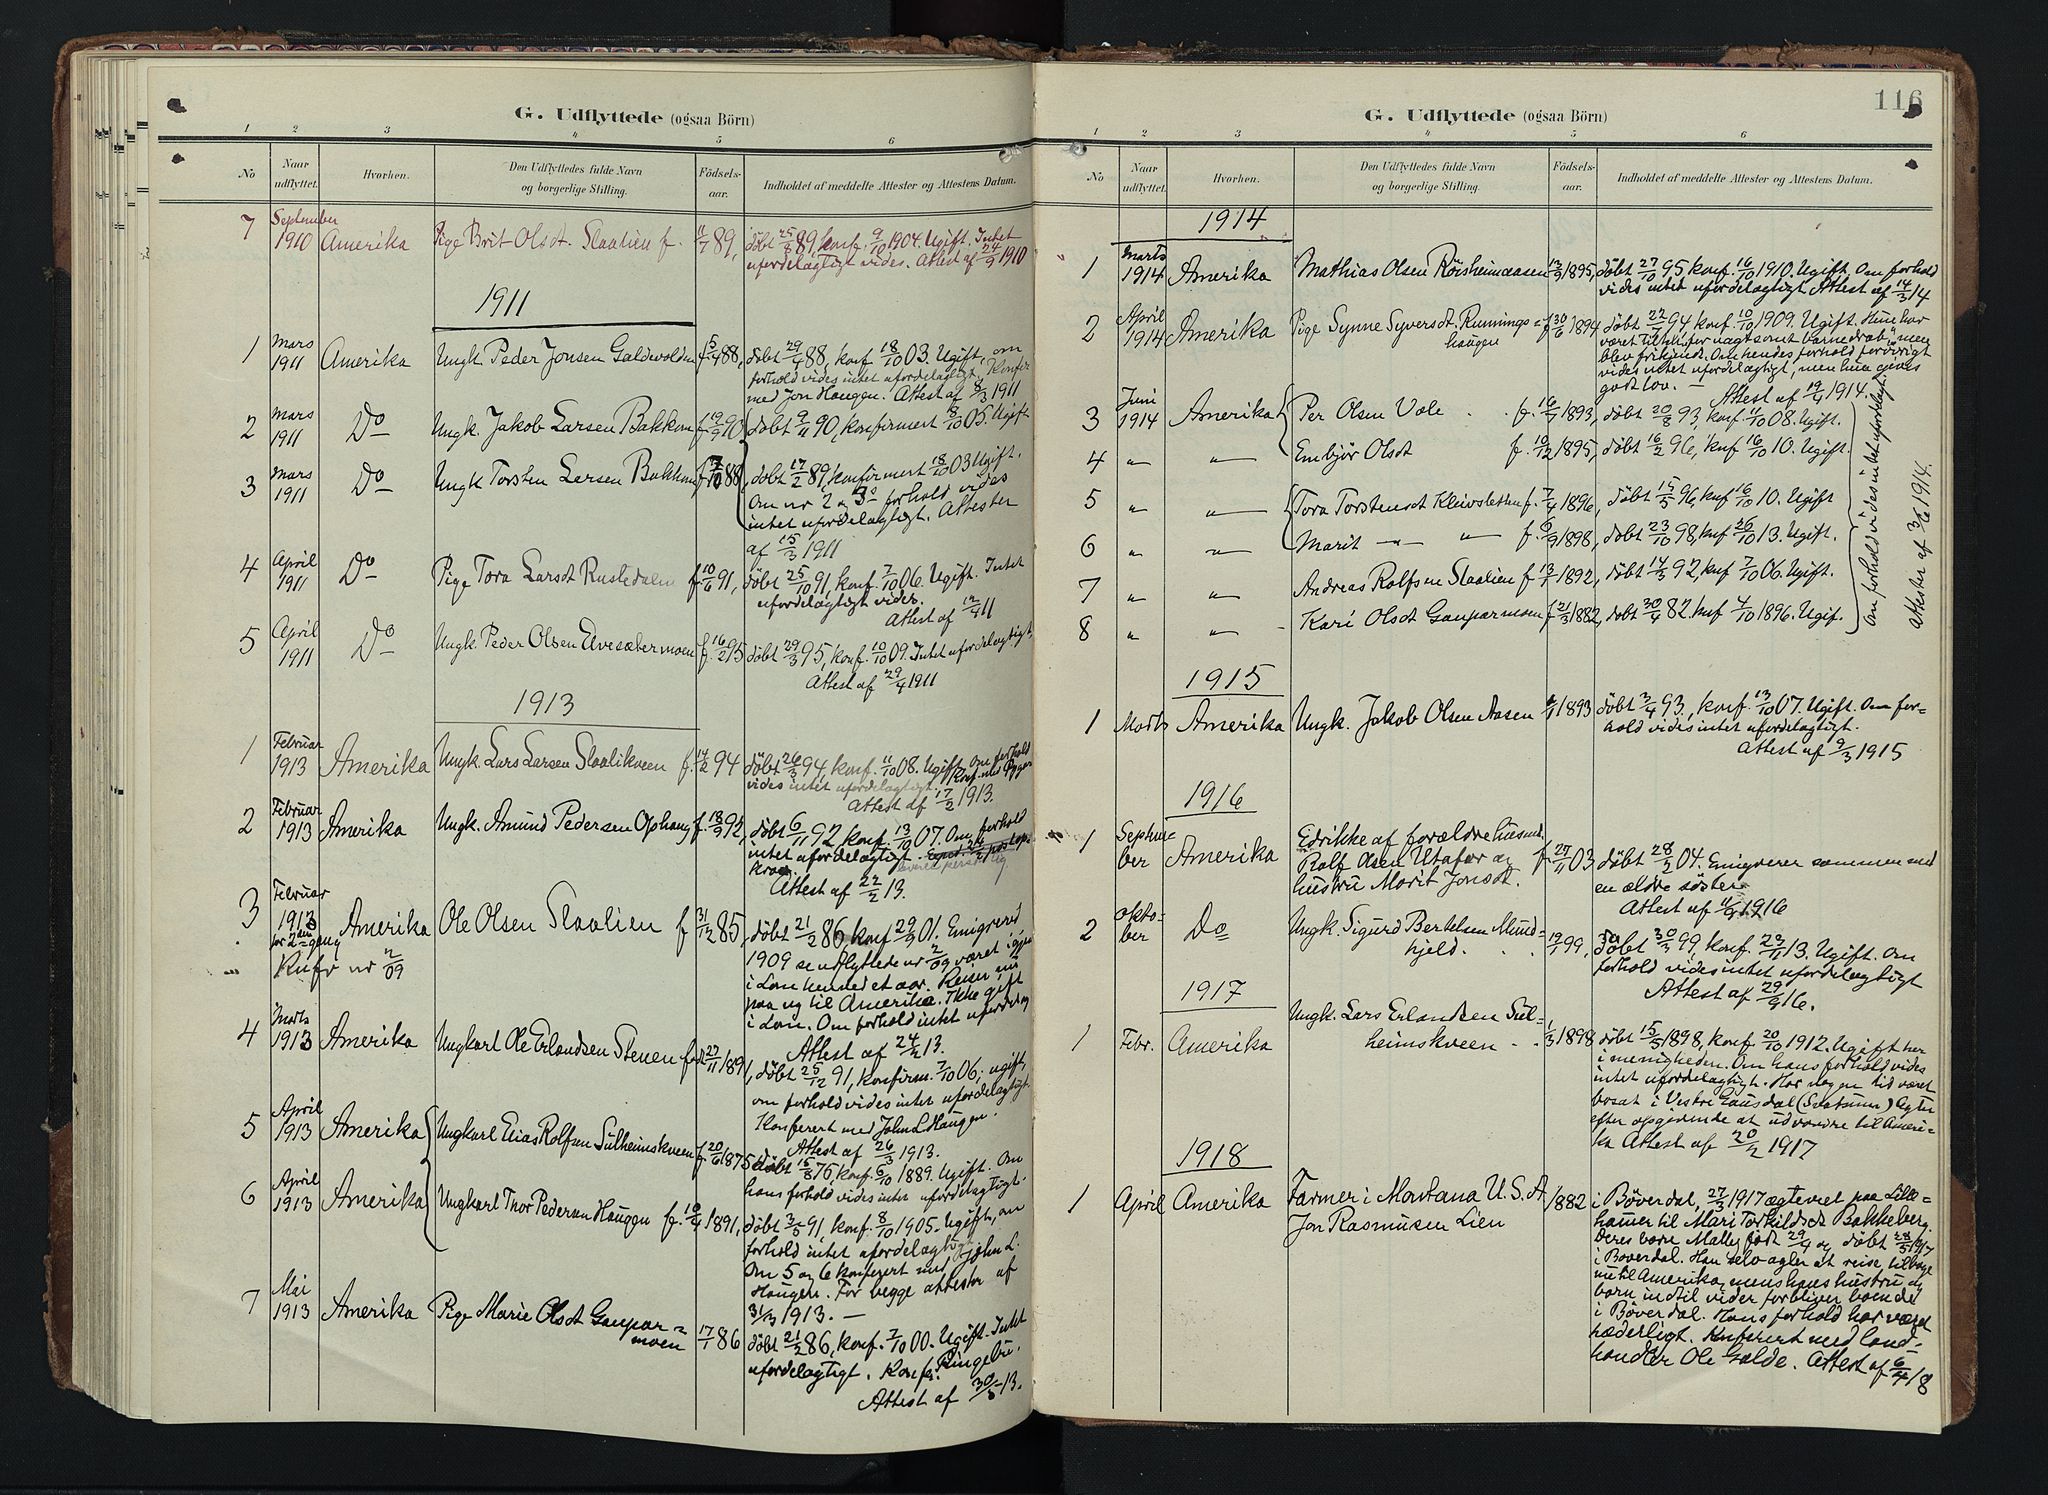 G. Udflyttede (ogsaa Börn)
1 2 3 4 5 6
No Naar udflyttet. Hvorhen. Den Udflyttedes fulde Navn og borgerlige Stilling. Fødselsaar. Indholdet af meddelte Attester og Attestens Datum.
7 September 1910 Amerika Pige Brit Olsdt. Slaalien f. 11/7 89, døbt 25/8 89, konf. 9/10 1904. Ugift. Intet
ufordelagtigt vides. Attest af 24/9 1910
1911
1 Mars 1911 Amerika Ungk. Peder Jonsen Galdevolden f. 5/4 88, døbt 29/4 88, konf. 18/10 03. Ugift, om
forhold vides intet ufordelagtigt. Konfer
med Jon Haugen. Attest af 8/3 1911
2 Mars 1911 Do Ungk. Jakob Larsen Bakken f. 19/9 90, døbt 9/11 90, konfirmert 8/10 05. Ugift
3 Mars 1911 Do Ungk Torsten Larsen Bakken f. 88, døbt 17/2 89, konfirmert 18/10 03 Ugift.
Om nr 2 og 3 forhold vides
intet ufordelagtigt. Attester
af 15/3 1911
4 April 1911 Do Pige Tora Larsdt Rustedalen f. 10/6 91, døbt 25/10 91, konf. 7/10 06. Ugift. Intet
ufordelagtigt vides.
Attest af 12/4 11
5 April 1911 Do Ungk. Peder Olsen Elvesætermoen f. 16/2 95 døbt 29/3 95, konf. 10/10 09. Intet ufordelagtigt,
Attest af 29/4 1911
1913
1 Februar 1913 Amerika Ungk. Lars Larsen Slaalikveen f. 14/2 94 døbt 26/3 94, konf. 11/10 08. Ugift. Om forhold
vides intet ufordelagtigt. Konf. med
Attest af 17/2 1913.
2 Februar 1913 Amerika Ungk. Amund Pedersen Ophaug f. 18/9 92, døbt 6/11 92 konf. 13/10 07. Om forhold
intet ufordelagtigt.
Attest af 22/2 13.
3 Februar 1913 for 2den gang Amerika Ole Olsen Slaalien f 31/12 85, døbt 21/2 86, konf 29/9 01. Emigrered
Konfr nr 2/09
1909 se utflyttede nr 2/09, været igjen
i Lom henved et aar. Reiser nu
paa ny til Amerika. Ikke gift
i Lom. Om forhold intet ufordelag
Attest af 24/2 13.
4 Marts 1913 Amerika Ungkarl Ole Erlandsen Stenen født 27/11 1891, døbt 25/12 91, konfirm. 7/10 06; ugift,
om forhold vides intet ufordelagtigt.
Konferert med John L Haugen.
Attest af 26/3 1913.
5 April 1913 Amerika Ungkarl Elias Rolfsen Sulheimskveen f. 20/6 1875 døbt 15/8 76, konf. 6/10 1889. Ugift. Om
hans forhold vides intet ufordelagtigt.
6 April 1913 Amerika Ungkarl Thor Pedersen Haugen f. 10/4 1891, døbt 3/5 91, konf. 8/10 1905. Ugift, om
forhold intet ufordelagtigt
Om 5 og 6 konferert med John L.
Haugen. For begge attester af
31/3 1913. —
7 Mai 1913 Amerika Pige Marie Olsdt Gauparmoen 17/1 86 døbt 21/2 86, konf. 7/10 00. Ugift. Intet
ufordelagtigt. Konf. Ringebu.
Attest af 30/5 13.
116
G. Udflyttede (ogsaa Börn)
1 2 3 4 5 6
No Naar udflyttet. Hvorhen. Den Udflyttedes fulde Navn og borgerlige Stilling. Fødselsaar. Indholdet af meddelte Attester og Attestens Datum.
1914
1 Marts 1914 Amerika Mathias Olsen Røisheimaasen 13/9 1895, døbt 27/10 95 konf. 16/10 1910. Ugift. Om forhold
vides intet ufordelagtigt Attest af 14/3 14
2 April 1914 Amerika Pige Synne Syversdt. Runningshaugen f 30/6 1894 døbt 22/7 94, konf. 10/10 1909. Ugift. Hun har
været tiltalt for uagtsomt barnedrab, men
blev frikjendt. Om hendes forhold forøvrigt
vides intet ufordelagtigt, men hun gives
godt lov. —
Attest af 19/4 1914.
3 Juni 1914 Amerika Per Olsen Vole f. 16/7 1893, døbt 20/8 93, konf. 11/10 08. Ugift.
4 " " Embjør Olsdt f. 10/12 1895, døbt 16/2 96, konf 16/10 10. Ugift.
5 " " Tora Torstensdt Kleivsletten f. 7/4 1896, døbt 15/5 96, konf 16/10 10. Ugift
6 " " Marit — " — " f. 6/9 1898, døbt 23/10 98, konf 26/10 13. Ugift.
7 " " Andreas Rolfsen Slaalien f 13/1 1892, døbt 14/3 92, konf 7/10 06. Ugift.
8 " " Kari Olsdt Gauparmoen f 21/3 1882, døbt 30/4 82. konf 4/10 1896. Ugif.
Om forhold vides intet ufordelagt.
Attester af 3/6 1914.
1915
1 Marts Amerika Ungk. Jakob Olsen Aasen 1893 døbt 3/4 93, konf. 13/10 07. Ugift. Om forhold
vides intet ufordelagtigt.
Attest af 9/3 1915
1916
1 September Amerika Edrikke af forældre husmd.
Rolf Olsen Utafor og f. 27/11 03 døbt 28/2 04. Emigrerer sammen med
hustru Marit Jonsdt. en ældre søster
Attest af 11/9 1916
2 Oktober Do Ungk. Sigurd Bertelsen Mundhjeld. 19/1 99, døbt 30/3 99, konf. 23/11 13. Ugift. Om
forhold vides intet ufordelagtigt
Attest af 29/9 16.
1917
1 Febr. Amerika Ungk. Lars Erlandsen Sulheimskveen 1/3 1898 døbt 15/5 1898, konf 20/10 1912. Ugift her
i menigheden. Om hans forhold vides
intet ufordelagtigt. Har nogen tid været
bosat i Vestre Gausdal (Svatsum) Agter
efter opgivende at udvandre til Amerika
Attest af 20/2 1917
1918
1 April Amerika Farmer i Montana U.S.A. 1882 i Bøverdal, 27/3 1917 ægteviet paa Lillehamer
Jon Rasmusen Lien til Mari Torkildsdt Bakkeberg.
Deres barn Malley født 29/4 og døbt 28/5 1917
i Bøverdal. Han selv agter at reise tilbage
nu til Amerika, mens hans hustru og
barn indtil vider forbliver boende
i Bøverdal. Hans forhold har været
hæderligt. Konferert med landhandler
Ole Galde. Attest af 6/4 18